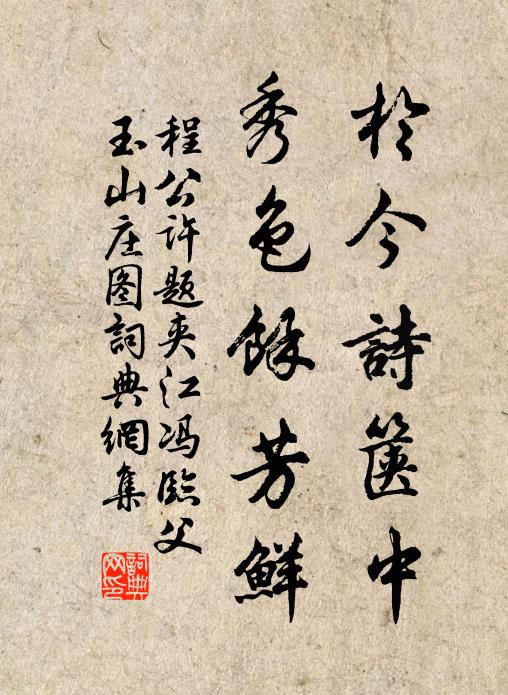 於今詩箧中
秀色餘芳鮮
程公许题夹江冯臨父
玉山庄图詞典網集
詞典网印